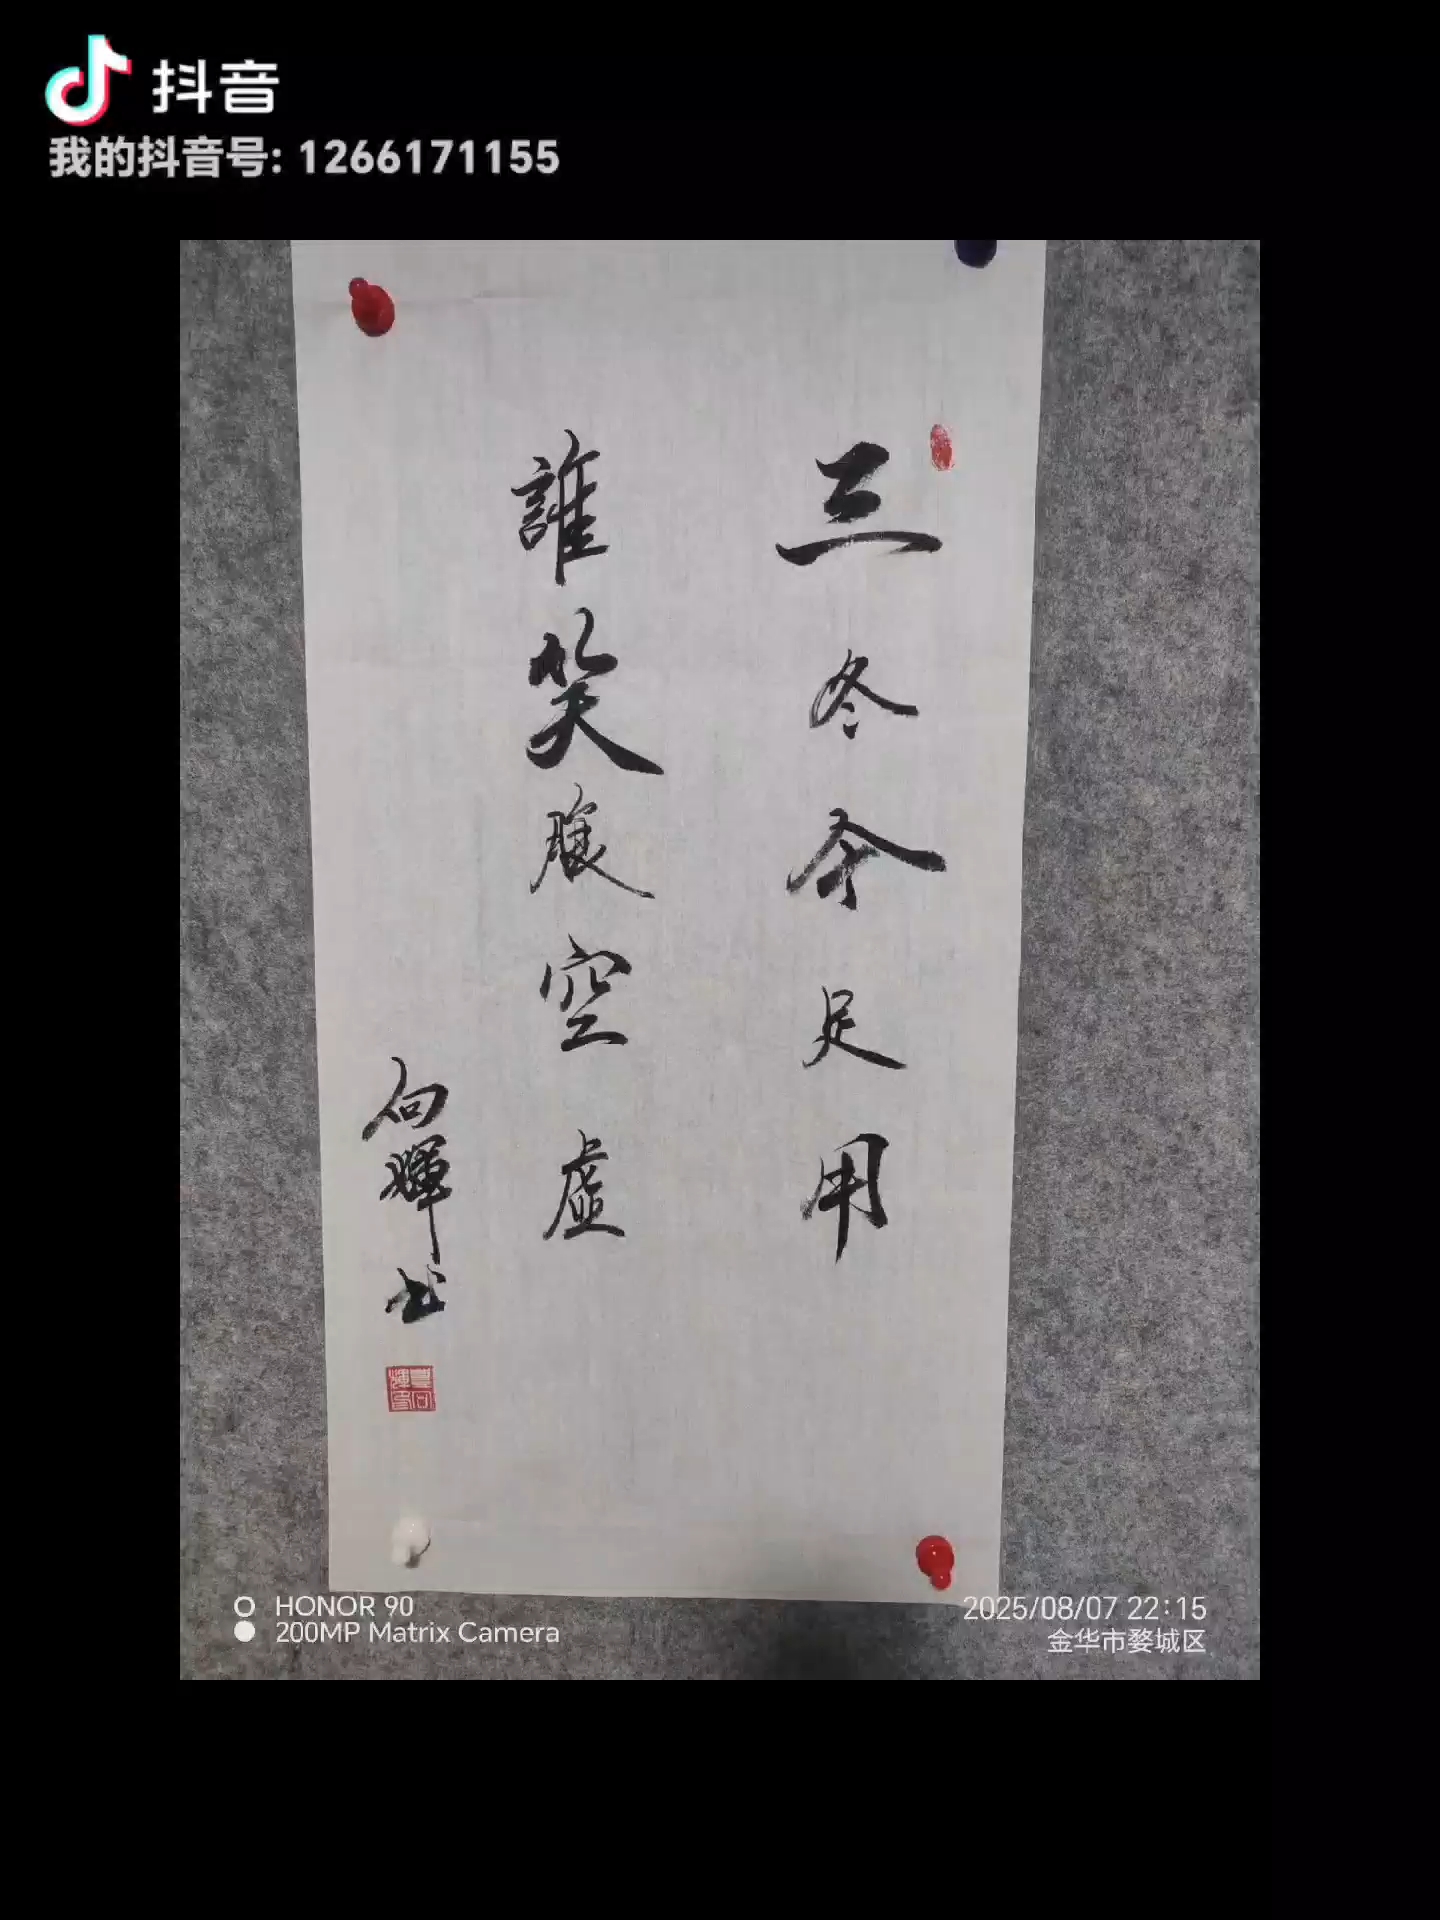 抖音
我的抖音号: 1266171155
三冬今足用
誰笑腹空虚
向暉书
HONOR 90
200MP Matrix Camera
2025/08/07 22:15
金华市婺城区